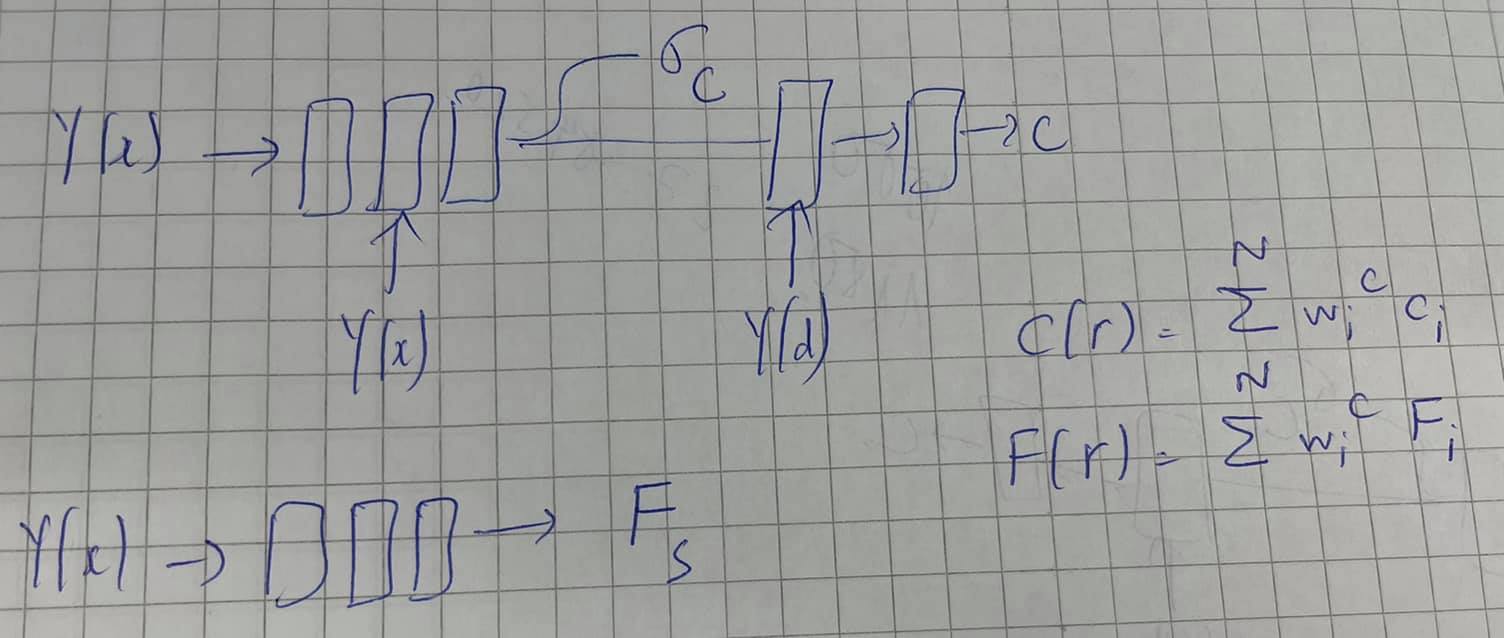 σ_c
Y(x) → → → c
Y(x) Y(d)
C(r) = Σ^N w_i^c c_i
F(r) = Σ^N w_i^c F_i
Y(x) → → F_s